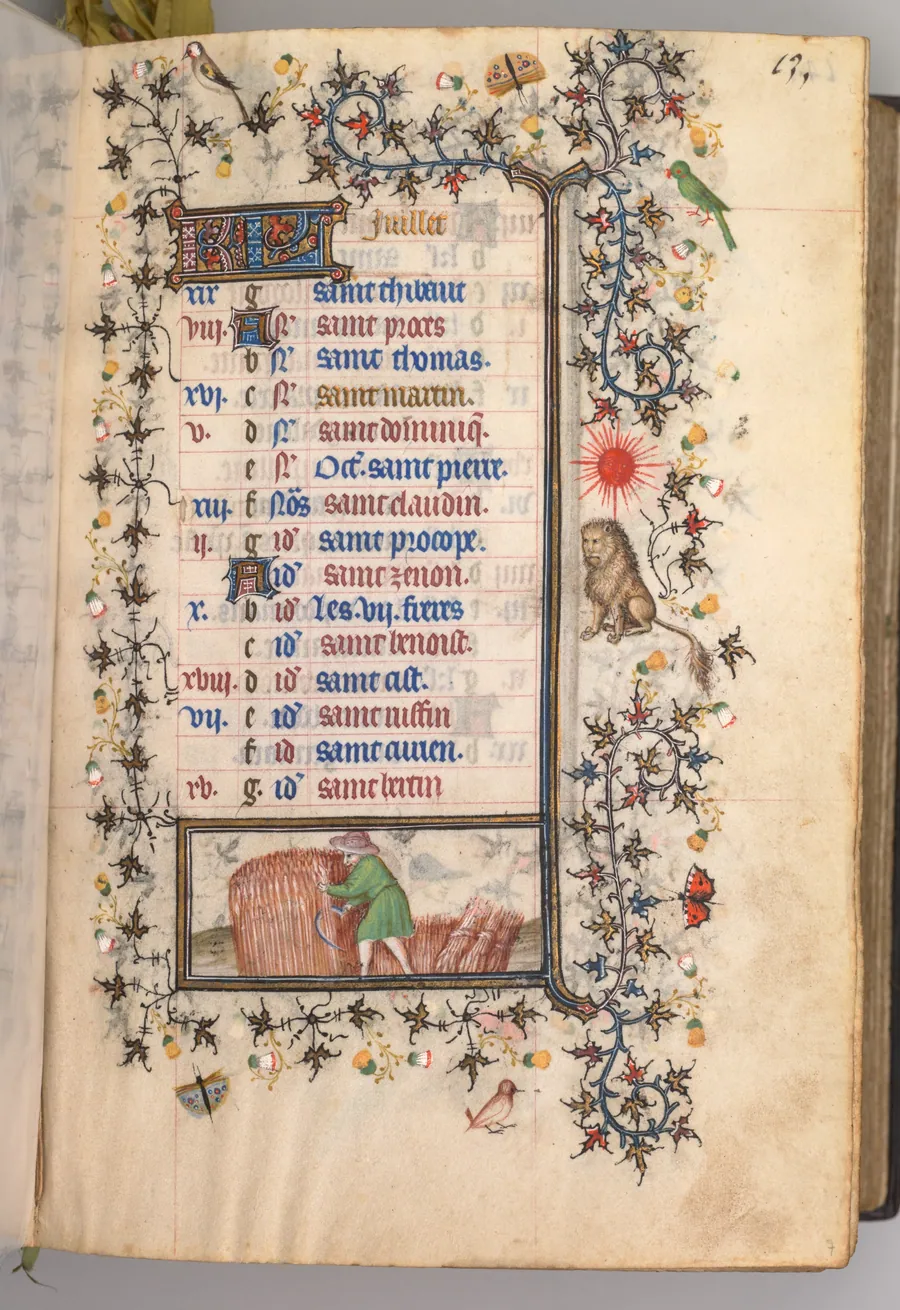 13,
KL Juillet
xix g saint thibaut
viij. A Nͬ saint proces
b Nͬ saint thomas.
xvj. c Nͬ saint martin.
v. d Nͬ saint dominiq̃.
e Nͬ Oct̃. saint pierre.
xiij. f Nõs saint claudin.
ij. g id' saint procope.
A id' saint zenon.
x. b id' Les. vij. freres
c id' saint benoist.
xviij. d id' saint cist.
vij. e id' saint
f id saint
xv. g. id' saint bertin